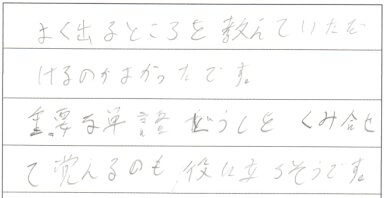 よく出るところを教えていただ
けるのがよかったです。
重要な単語どうしを くみ合せ
て覚えるのも 役に立つそうです。